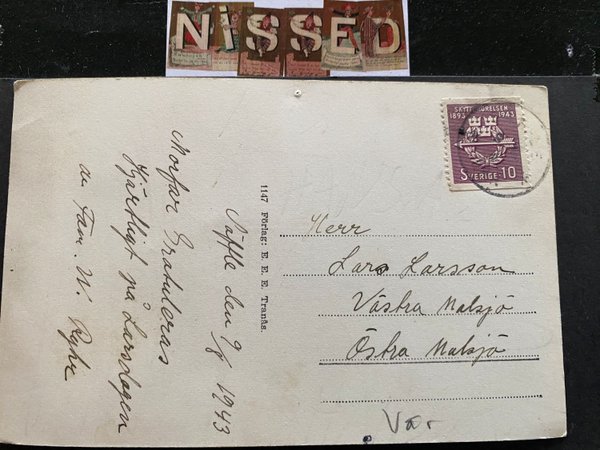 NISSED
SKYTTERÖRELSEN
1893 1943
SVERIGE 10
Morfar Gratuleras
Hjärtligt på Larsdagen
av Fam. W.
Säffle den 9/8 1943
1147 Förlag: E. E. E. Tranås.
Herr
Lars Larsson
Västra Malsjö
Östra Malsjö
Var